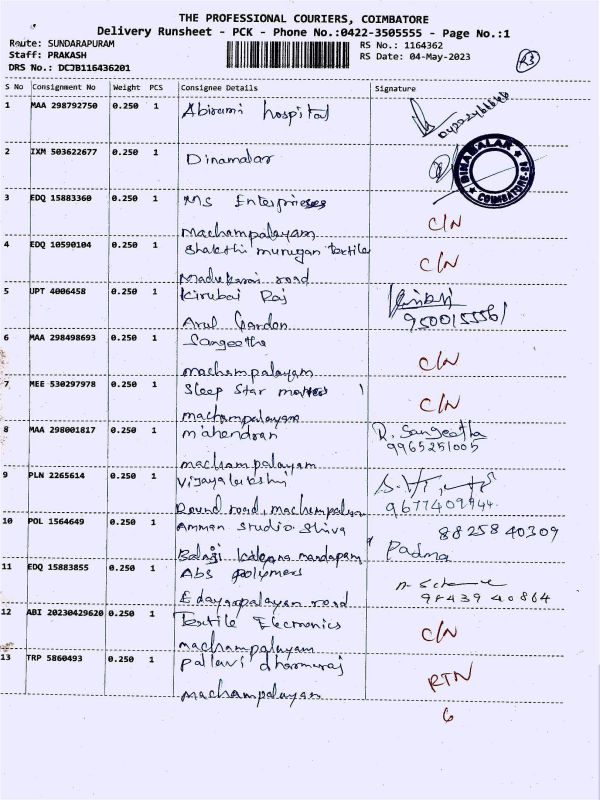 THE PROFESSIONAL COURIERS, COIMBATORE
Delivery Runsheet - PCK - Phone No.:0422-3505555 - Page No.:1
Route: SUNDARAPURAM
RS No.: 1164362
Staff: PRAKASH
RS Date: 04-May-2023
DRS No.: DCJB116436201
S No Consignment No Weight PCS Consignee Details Signature
1 MAA 298792750 0.250 1 Abirami hospital
2 IXM 503622677 0.250 1 Dinamalar
DINAMALAR
COIMBATORE
3 EDQ 15883360 0.250 1 MS Enterprises
Machampalayam C/N
4 EDQ 10590104 0.250 1 Shakthi murugan textile
Madukarai road C/N
5 UPT 4006458 0.250 1 Kirubai Raj
Arul Garden 9500155561
6 MAA 298498693 0.250 1 Sangeetha
machampalayam C/N
7 MEE 530297978 0.250 1 Sleep Star
machampalayam C/N
8 MAA 298001817 0.250 1 Mahendran R. Sangeetha
machampalayam 9965251005
9 PLN 2265614 0.250 1 Vijayalakshmi
Round road, machampalayam 9677409944
10 POL 1564649 0.250 1 Amman Studio Shiva 88258 40309
Balaji kalyana mandapam Padma
11 EDQ 15883855 0.250 1 Abs polymers
Edayarpalayam road 98439 40864
12 ABI 20230429620 0.250 1 Textile Electronics
machampalayam C/N
13 TRP 5860493 0.250 1 pallavi dharmaraj
Machampalayam RTN
6